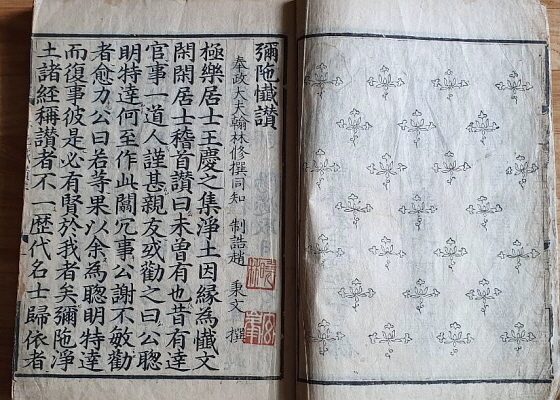 彌陁懺讃
奉政大夫翰林修撰同知 制誥趙 秉文 撰
極樂居士王慶之集淨土因緣為懺文
閑閑居士稽首讃曰未曽有也昔有達
官事一道人謹甚親友或勸之曰公聦
明特達何至作此闒冗事公謝不敏勸
者愈力公曰若等果以余為聦明特達
而復事彼是必有賢於我者矣彌陁淨
土諸經稱讃者不一歴代名士歸依者